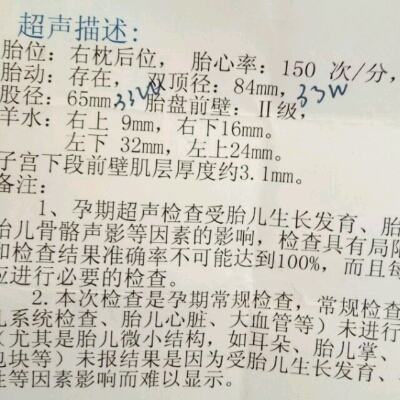 超声描述:
胎位: 右枕后位, 胎心率: 150 次/分,
胎动: 存在, 双顶径: 84mm, 33W
股径: 65mm 33W 胎盘前壁: Ⅱ级,
羊水: 右上 9mm, 右下16mm。
左下 32mm, 左上24mm。
子宫下段前壁肌层厚度约3.1mm。
备注:
1、孕期超声检查受胎儿生长发育、胎
胎儿骨骼声影等因素的影响, 检查具有局限
和检查结果准确率不可能达到100%, 而且每
应进行必要的检查。
2. 本次检查是孕期常规检查, 常规检查
儿系统检查、胎儿心脏、大血管等) 未进行
(尤其是胎儿微小结构, 如耳朵、胎儿掌、
包块等) 未报结果是因为受胎儿生长发育、
性等因素影响而难以显示。